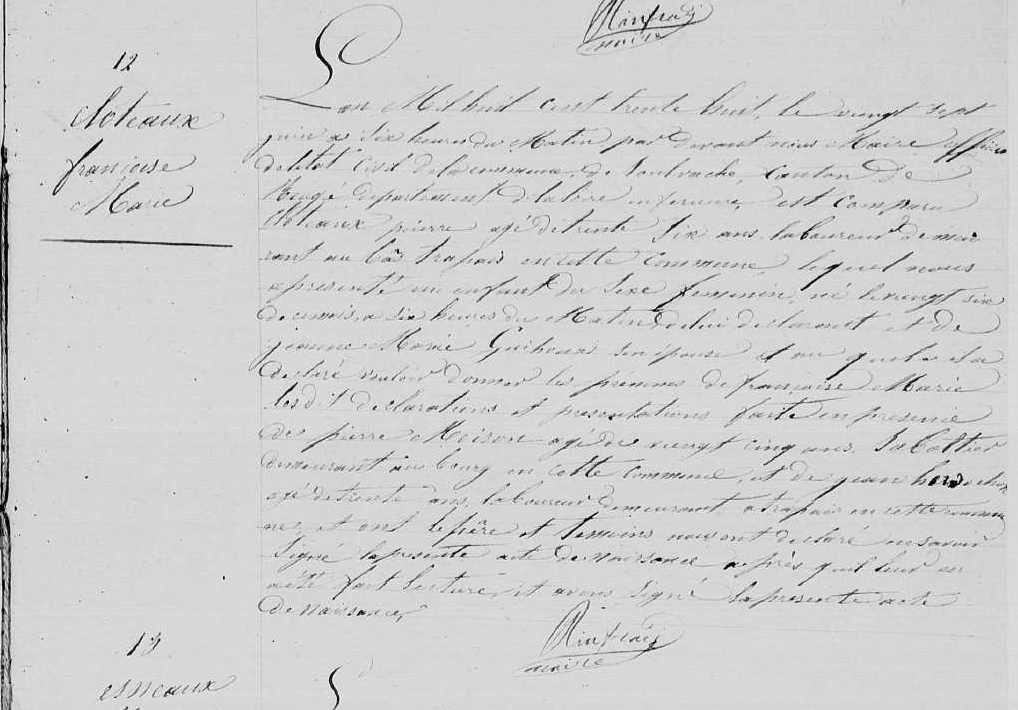 maire
12
cloteaux
françoise
Marie
L'an Mil huit cent trente huit, le vingt sept
juin a six heures du Matin par devant nous Maire officier
de letat Civil de la commune, de Soulvache, Canton De
Rougé département de la loire inferieure, est comparu
Cloteaux pierre agé de trente Six ans, laboureur demeu
rant au bas trapais en cette commune, lequel nous
a présenté un enfant du Sexe feminin, né le vingt six
de ce mois, a six heures du Matin, de lui declarant et de
jeanne Marie Guiheux son épouse et au quel il a
declaré vouloir donner les prénoms de françoise Marie
lesdit declarations et presentations faite en presence
de pierre Moison agé de vingt cinq ans, Sabottier
demeurant au bourg en cette commune, et de jean
agé de trente ans, laboureur demeurant a trapais en cette commu
ne, et ont le père et temoins nous ont declaré ne savoir
signé la presente acte de naissance après quil leur en
a été fait lecture, et avons signé la presente acte
de naissance,
maire
13
esneaux